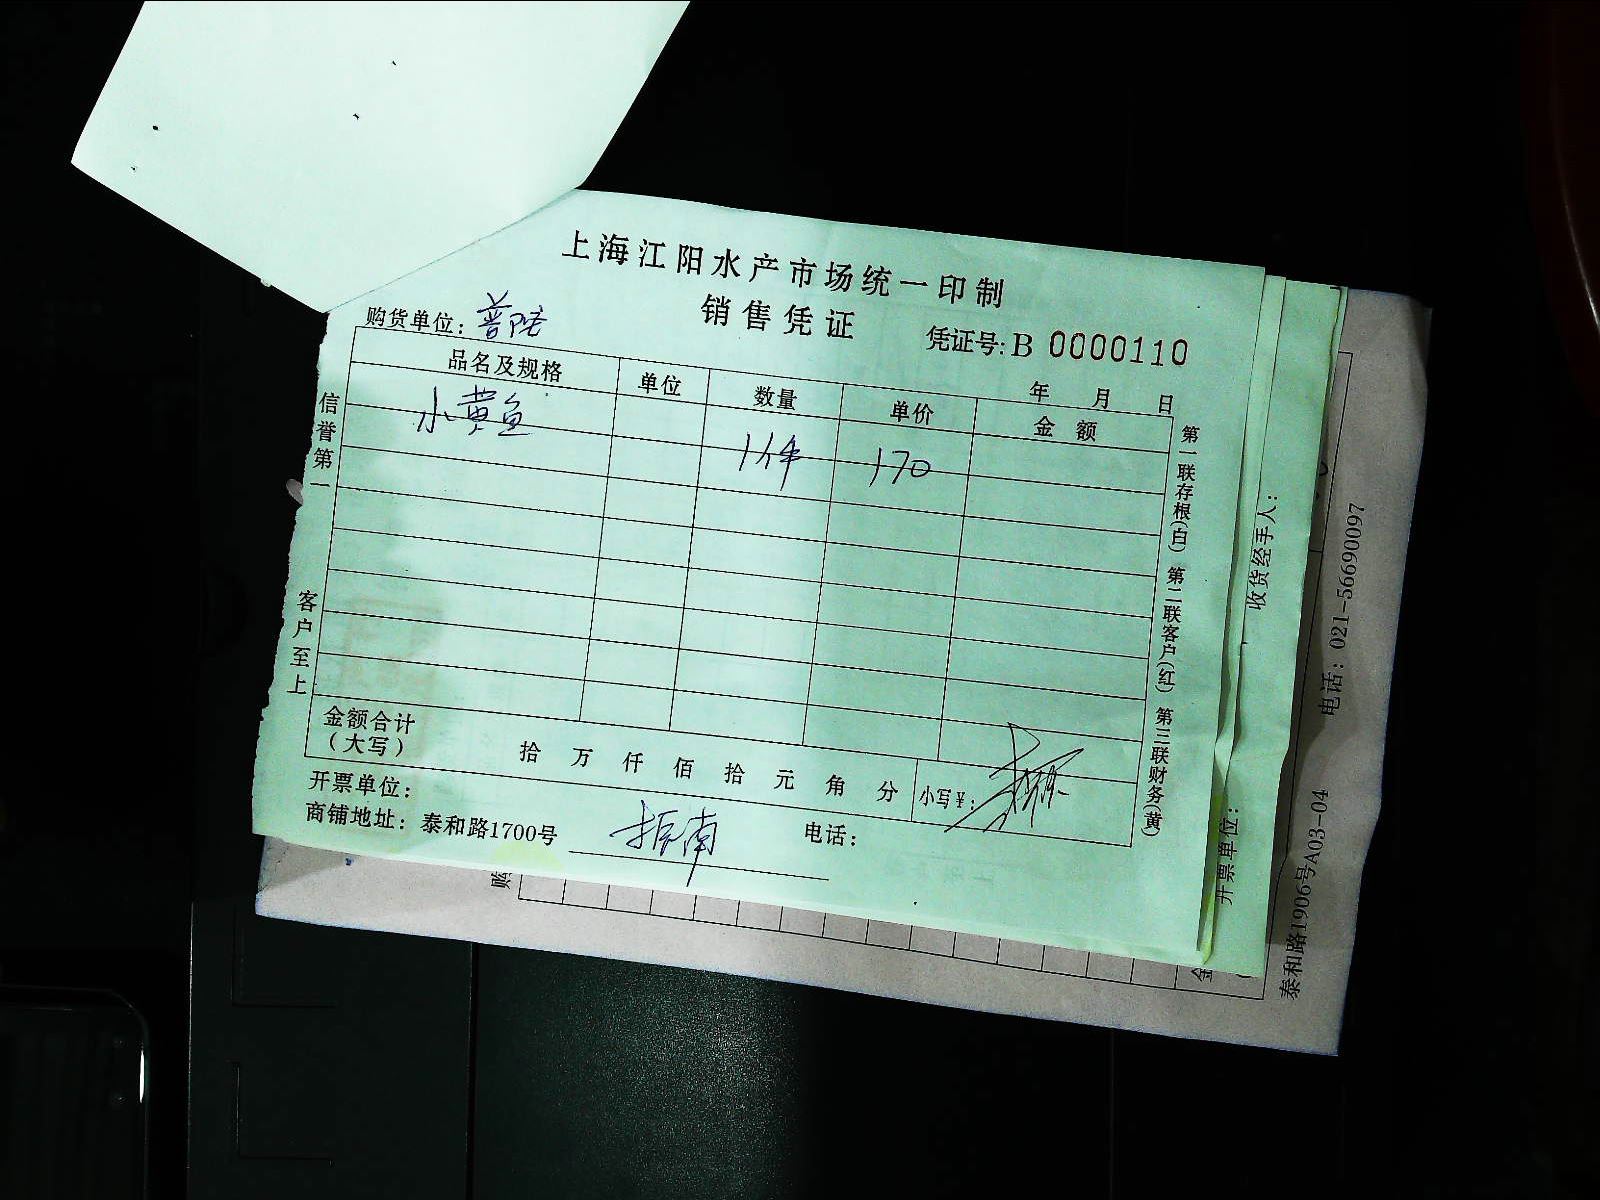 上海江阳水产市场统一印制
销售凭证
购货单位：普陀
凭证号：B 0000110
年 月 日
品名及规格 单位 数量 单价 金额
小黄鱼 1件 170
金额合计
（大写） 拾 万 仟 佰 拾 元 角 分 小写¥：
开票单位：
商铺地址：泰和路1700号 振南 电话：
信誉第一 客户至上
第一联存根(白) 第二联客户(红) 第三联财务(黄)
收货经手人：
开票单位：
泰和路1906号A03-04 电话：021-56690097
购
金